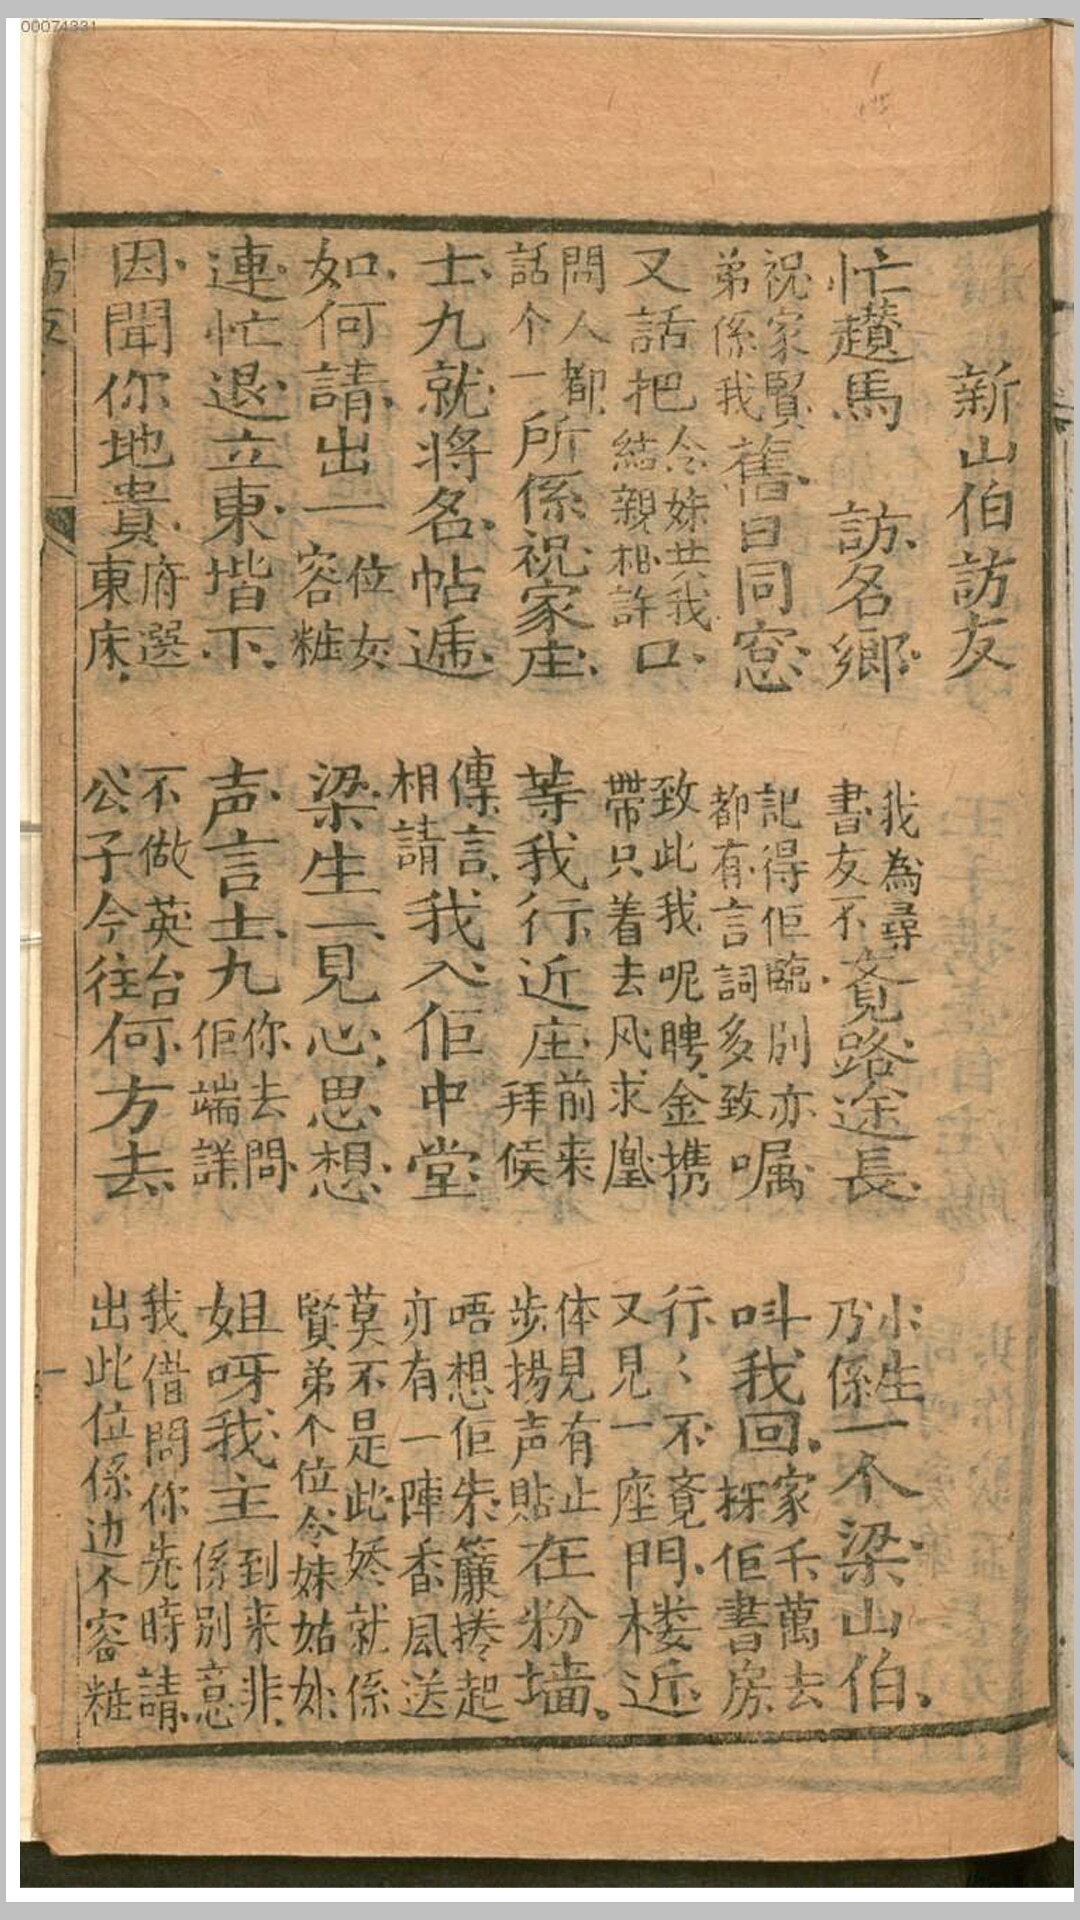 00074331
新山伯訪友
忙趲馬 訪名鄉 我為尋書友不覓路途長 小生乃係一个梁山伯。
祝家賢弟係我舊日同窓 記得佢臨別亦都有言詞多致囑 呌我回家千萬去探佢書房
又話把令妹共我結親相許口 致此我呢聘金携帶只着去风求凰 行〻不竟又見一座門楼近
問人都話个一所係祝家庄 等我行近庄前来拜候 体見有止步揚声貼在粉墻。
士九就将名帖遞 傳言相請我入佢中堂 唔想佢朱簾捲起亦有一陣香風送
如何請出一位女容粧 梁生一見心思想 莫不是此娇就係賢弟个位令妹姑娘
連忙退立東堦下 声言士九你去問佢端詳 姐呀我主到来非係別意
因聞你地貴府選東床 不做英台公子今往何方去 我借問你先時請出此位係边个容粧